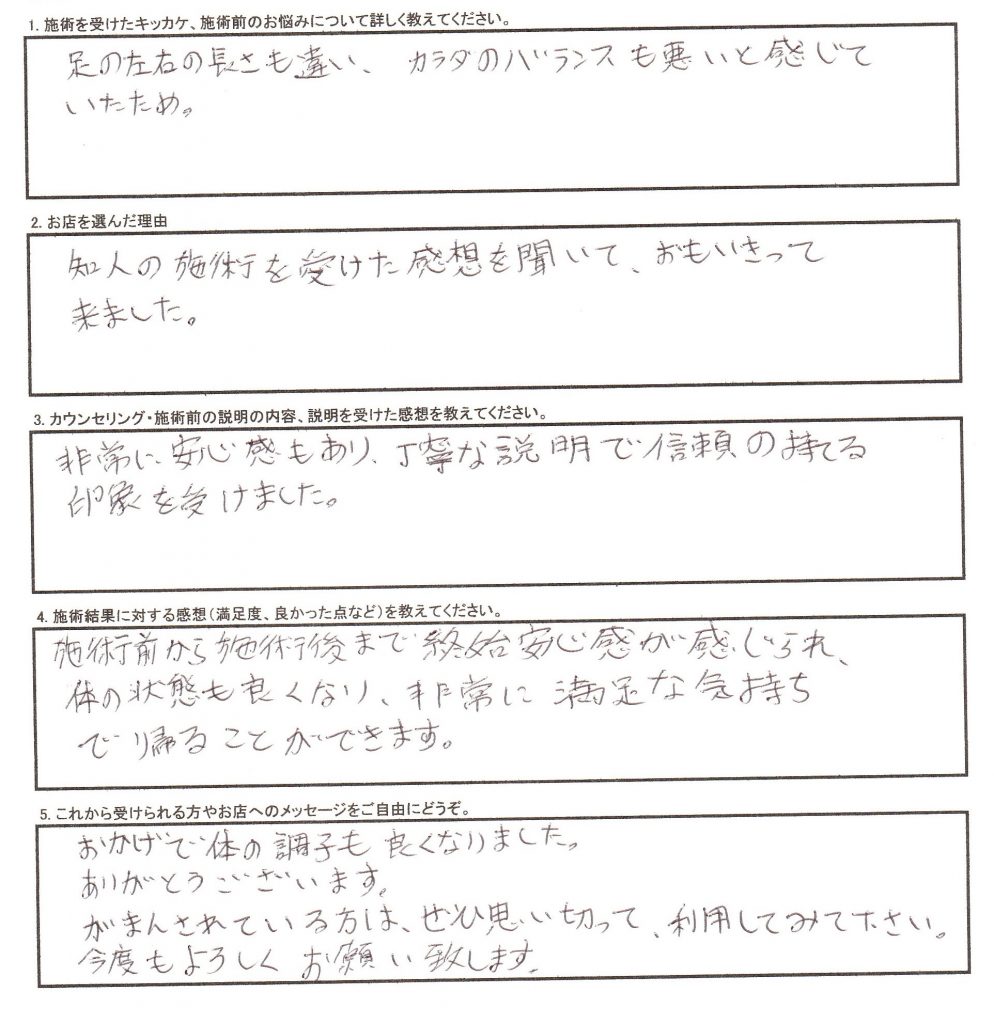 1. 施術を受けたキッカケ、施術前のお悩みについて詳しく教えてください。
足の左右の長さも違い、カラダのバランスも悪いと感じて
いたため。
2. お店を選んだ理由
知人の施術を受けた感想を聞いて、おもいきって
来ました。
3. カウンセリング・施術前の説明の内容、説明を受けた感想を教えてください。
非常に安心感もあり、丁寧な説明で信頼の持てる
印象を受けました。
4. 施術結果に対する感想(満足度、良かった点など)を教えてください。
施術前から施術後まで終始安心感が感じられ、
体の状態も良くなり、非常に満足な気持ち
で帰ることができます。
5. これから受けられる方やお店へのメッセージをご自由にどうぞ。
おかげで体の調子も良くなりました。
ありがとうございます。
がまんされている方は、ぜひ思い切って、利用してみて下さい。
今度もよろしくお願い致します。